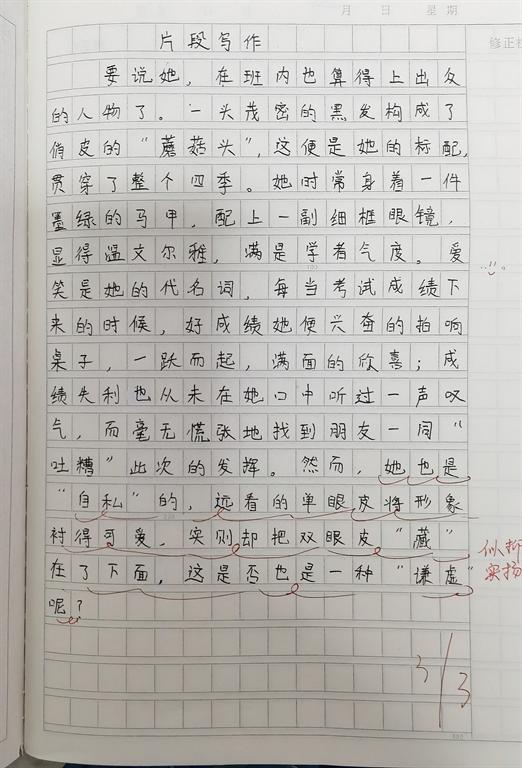 月 日 星期
修正栏
片段写作
要说她，在班内也算得上出众
的人物了。一头茂密的黑发构成了
俏皮的“蘑菇头”，这便是她的标配，
贯穿了整个四季。她时常身着一件
墨绿的马甲，配上一副细框眼镜，
显得温文尔雅，满是学者气度。爱
笑是她的代名词，每当考试成绩下
来的时候，好成绩她便兴奋的拍响
桌子，一跃而起，满面的欣喜；成
绩失利也从未在她口中听过一声叹
气，而毫无慌张地找到朋友一同“
吐糟”此次的发挥。然而，她也是
“自私”的，远看的单眼皮将形象
衬得可爱，实则却把双眼皮“藏”
在了下面，这是否也是一种“谦虚”
呢？
似抑
实扬
3/3